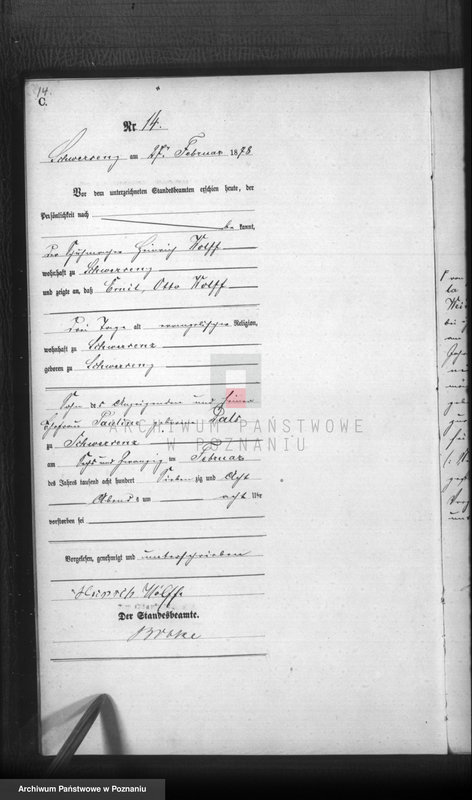 14.
C.
Nr 14.
Schwersenz am 27. Februar 1878
Vor dem unterzeichneten Standesbeamten erschien heute, der
Persönlichkeit nach
be kannt,
der Schuhmacher Heinrich Wolff
wohnhaft zu Schwersenz
und zeigte an, daß Emil, Otto Wolff
drei Tage alt evangelischer Religion,
wohnhaft zu Schwersenz
geboren zu Schwersenz
Sohn des Anzeigenden und seiner
Ehefrau Pauline geborene
zu Schwersenz
am Sechs und zwanzig ten Februar
des Jahres tausend acht hundert Sieben zig und Acht
Abends um acht Uhr
verstorben sei
Vorgelesen, genehmigt und unterschrieben
Heinrich Wolff
Der Standesbeamte.
ARCHIWUM PAŃSTWOWE
W POZNANIU
Archiwum Państwowe w Poznaniu